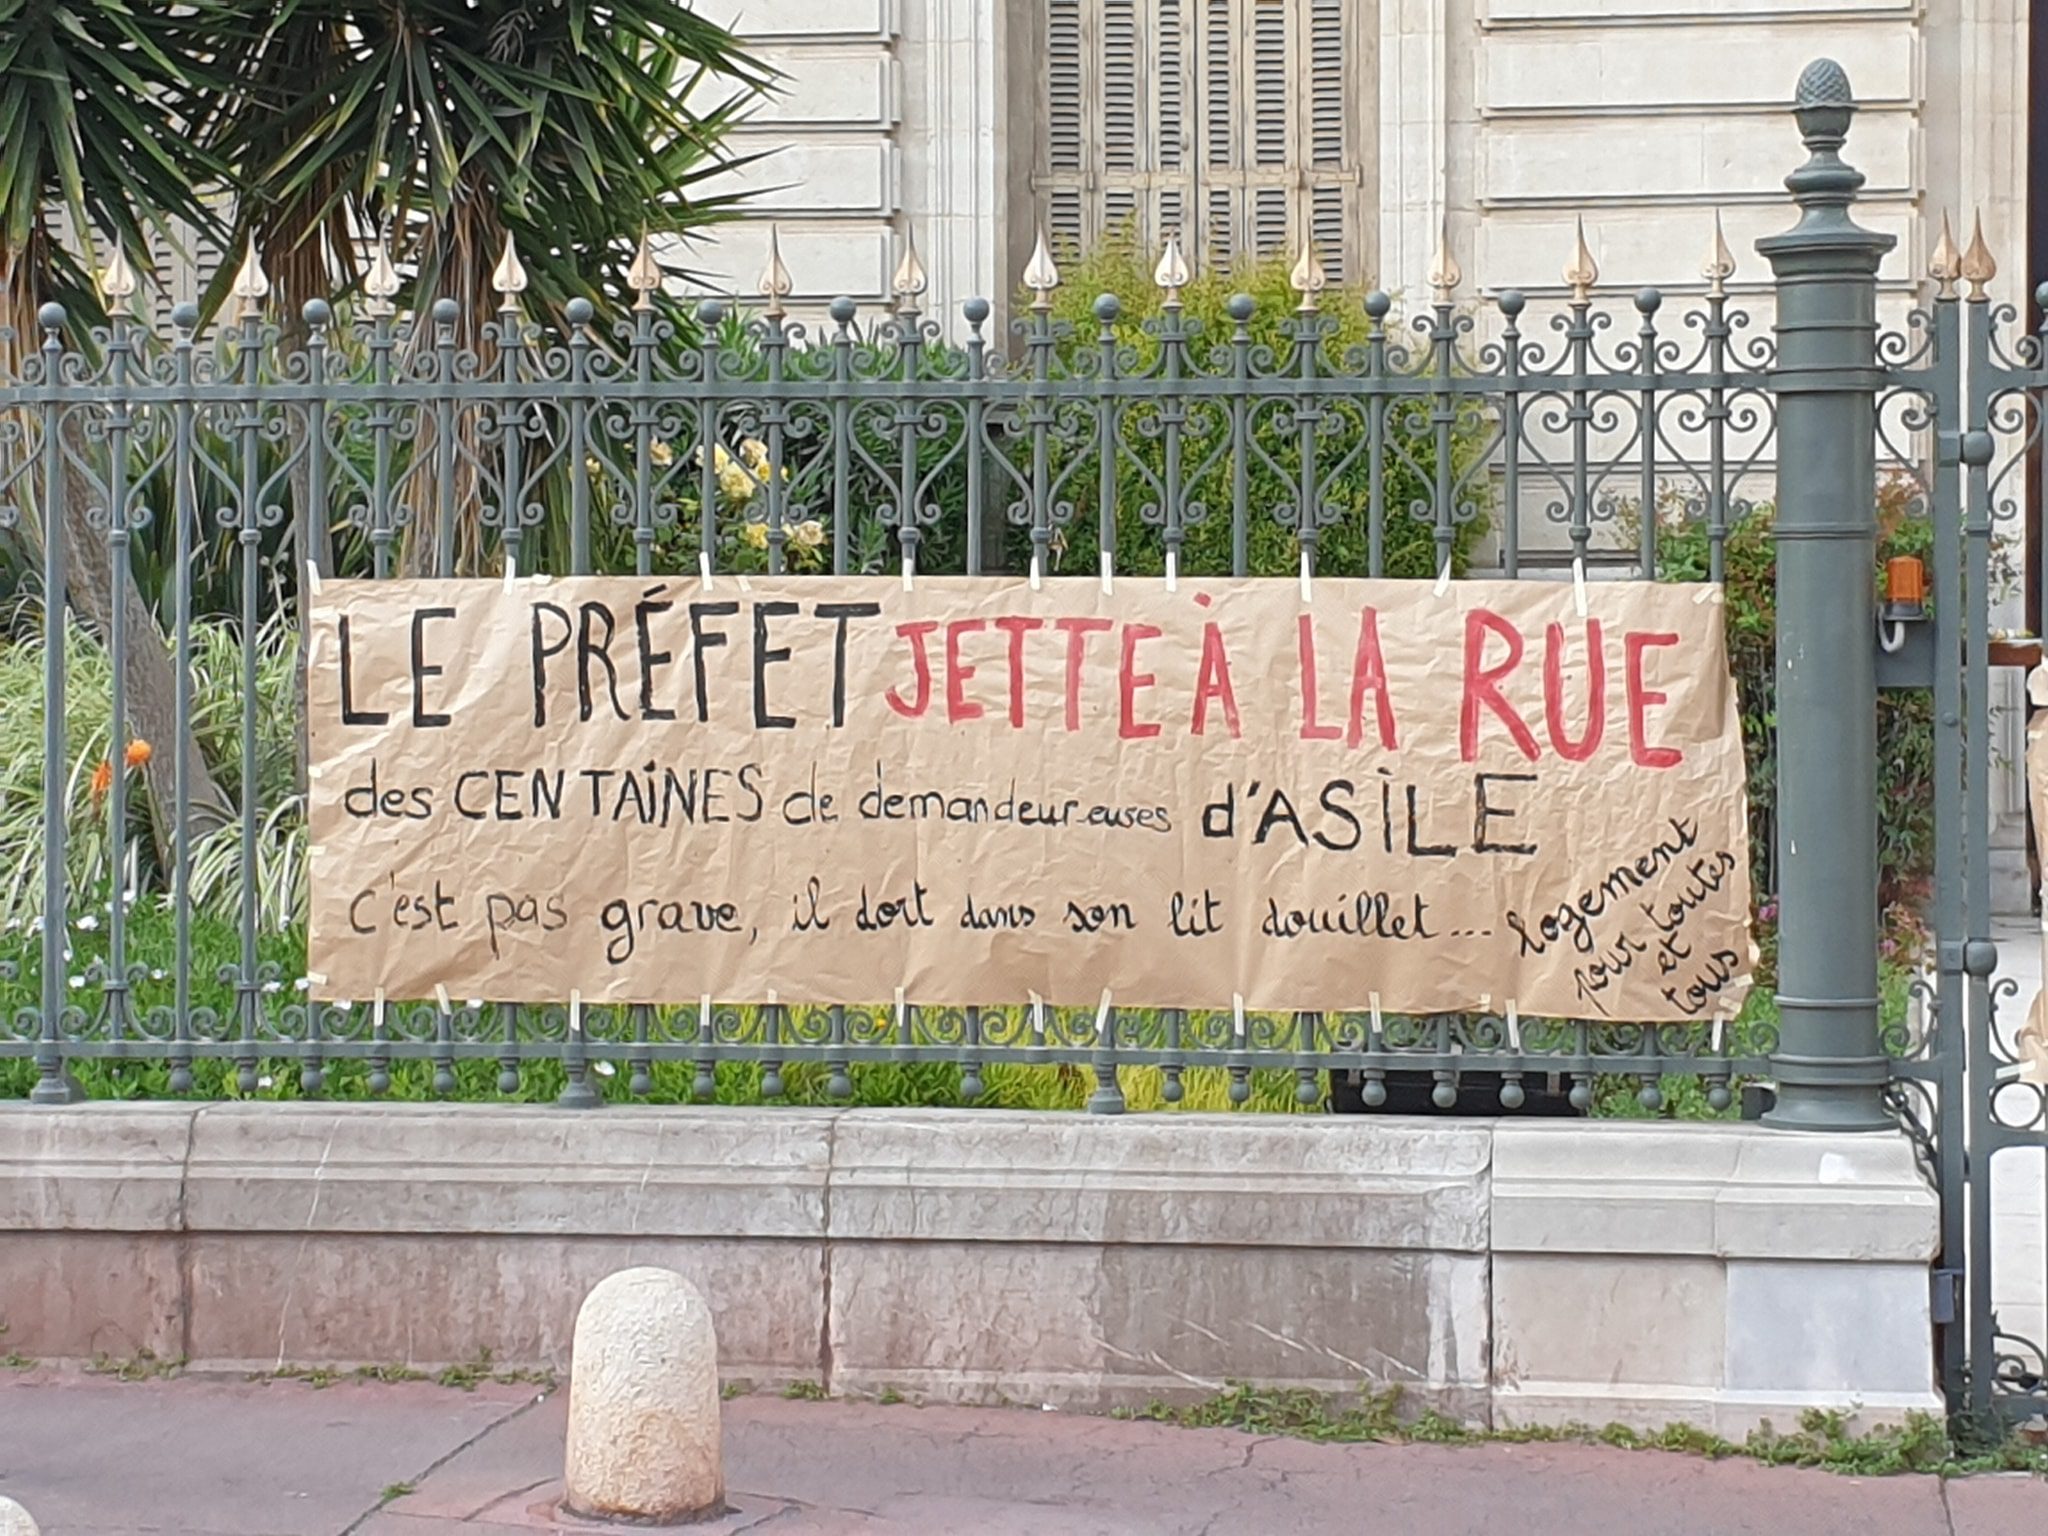 LE PRÉFET JETTE À LA RUE
des CENTAINES de demandeur-euses d'ASILE
c'est pas grave, il dort dans son lit douillet...
logement
pour toutes
et
tous